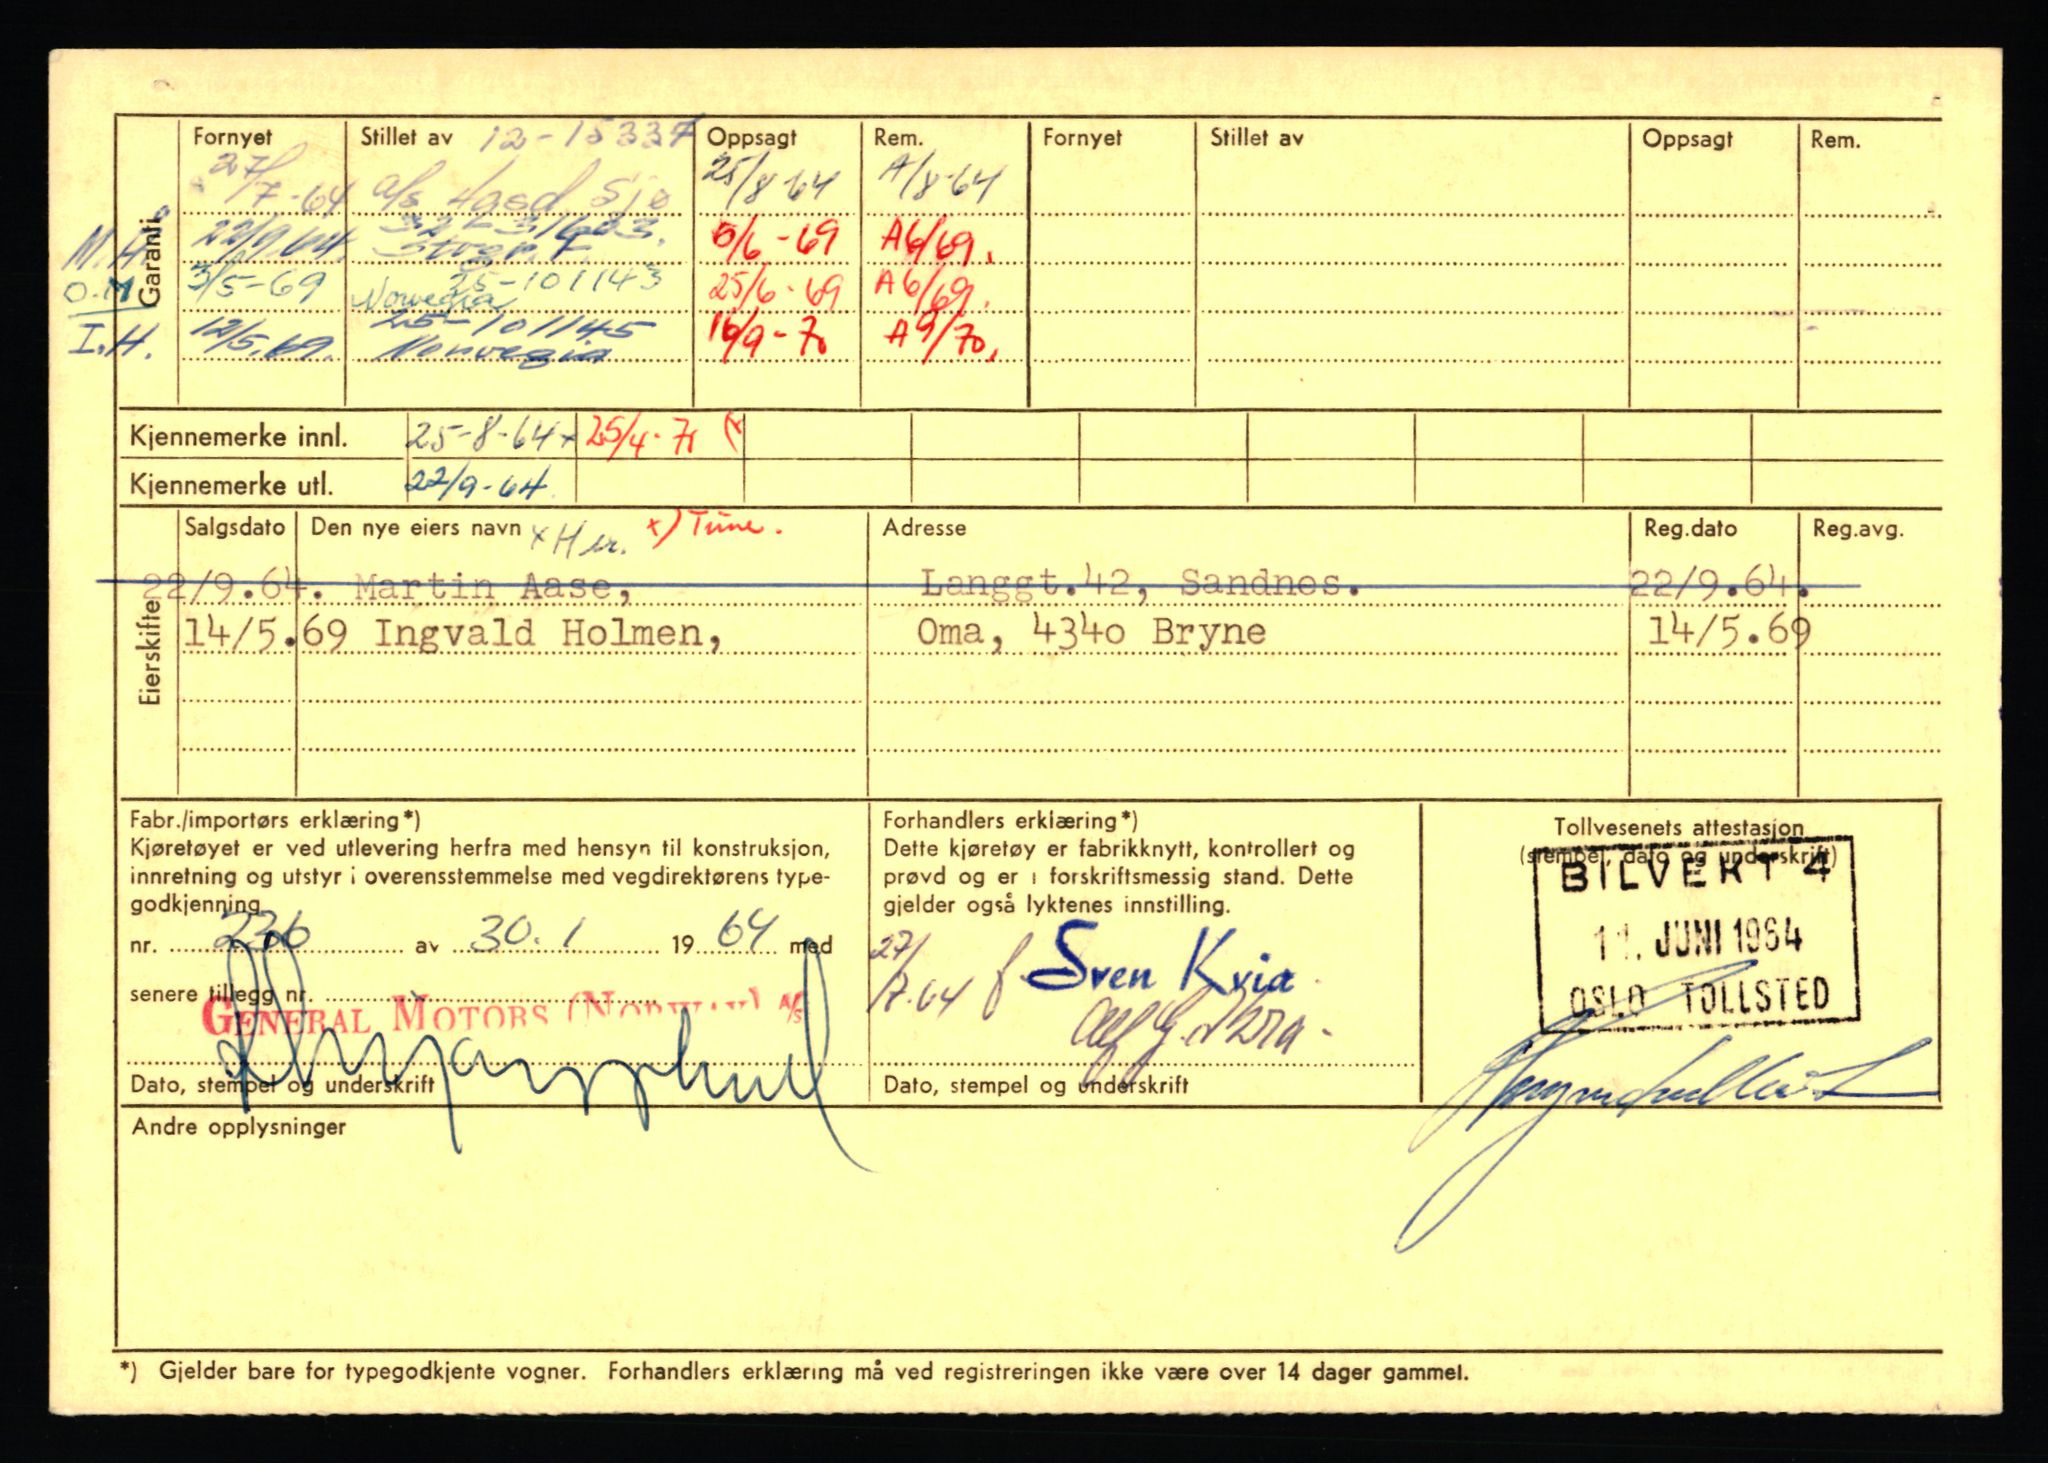 Fornyet Stillet av 12-15337 Oppsagt Rem. Fornyet Stillet av Oppsagt Rem.
Garanti
27/7-64 a/s 25/8-64 A/8-64
M.H. 22/9.64. 32-31603. 5/6-69 A6/69.
O.M 3/5-69 25-101143 Norwegia 25/6-69 A6/69.
I.H. 12/5.69. 25-101145 Norvegia 16/9-70 A9/70.
Kjennemerke innl. 25-8-64x 25/4-71 (x
Kjennemerke utl. 22/9-64.
Eierskifte
Salgsdato Den nye eiers navn x Her. x) Tune. Adresse Reg.dato Reg.avg.
22/9.64. Martin Aase, Langgt.42, Sandnes. 22/9.64.
14/5.69 Ingvald Holmen, Oma, 4340 Bryne 14/5.69
Fabr./importørs erklæring*)
Kjøretøyet er ved utlevering herfra med hensyn til konstruksjon,
innretning og utstyr i overensstemmelse med vegdirektørens type-
godkjenning
nr. 236 av 30.1 1964 med
senere tillegg nr.
GENERAL MOTORS (NORWAY) A/S
Dato, stempel og underskrift
Forhandlers erklæring*)
Dette kjøretøy er fabrikknytt, kontrollert og
prøvd og er i forskriftsmessig stand. Dette
gjelder også lyktenes innstilling.
27/7-64 f Sven Kvia
Dato, stempel og underskrift
Tollvesenets attestasjon
(stempel, dato og underskrift)
BILVEKT 4
11. JUNI 1964
OSLO TOLLSTED
Andre opplysninger
*) Gjelder bare for typegodkjente vogner. Forhandlers erklæring må ved registreringen ikke være over 14 dager gammel.